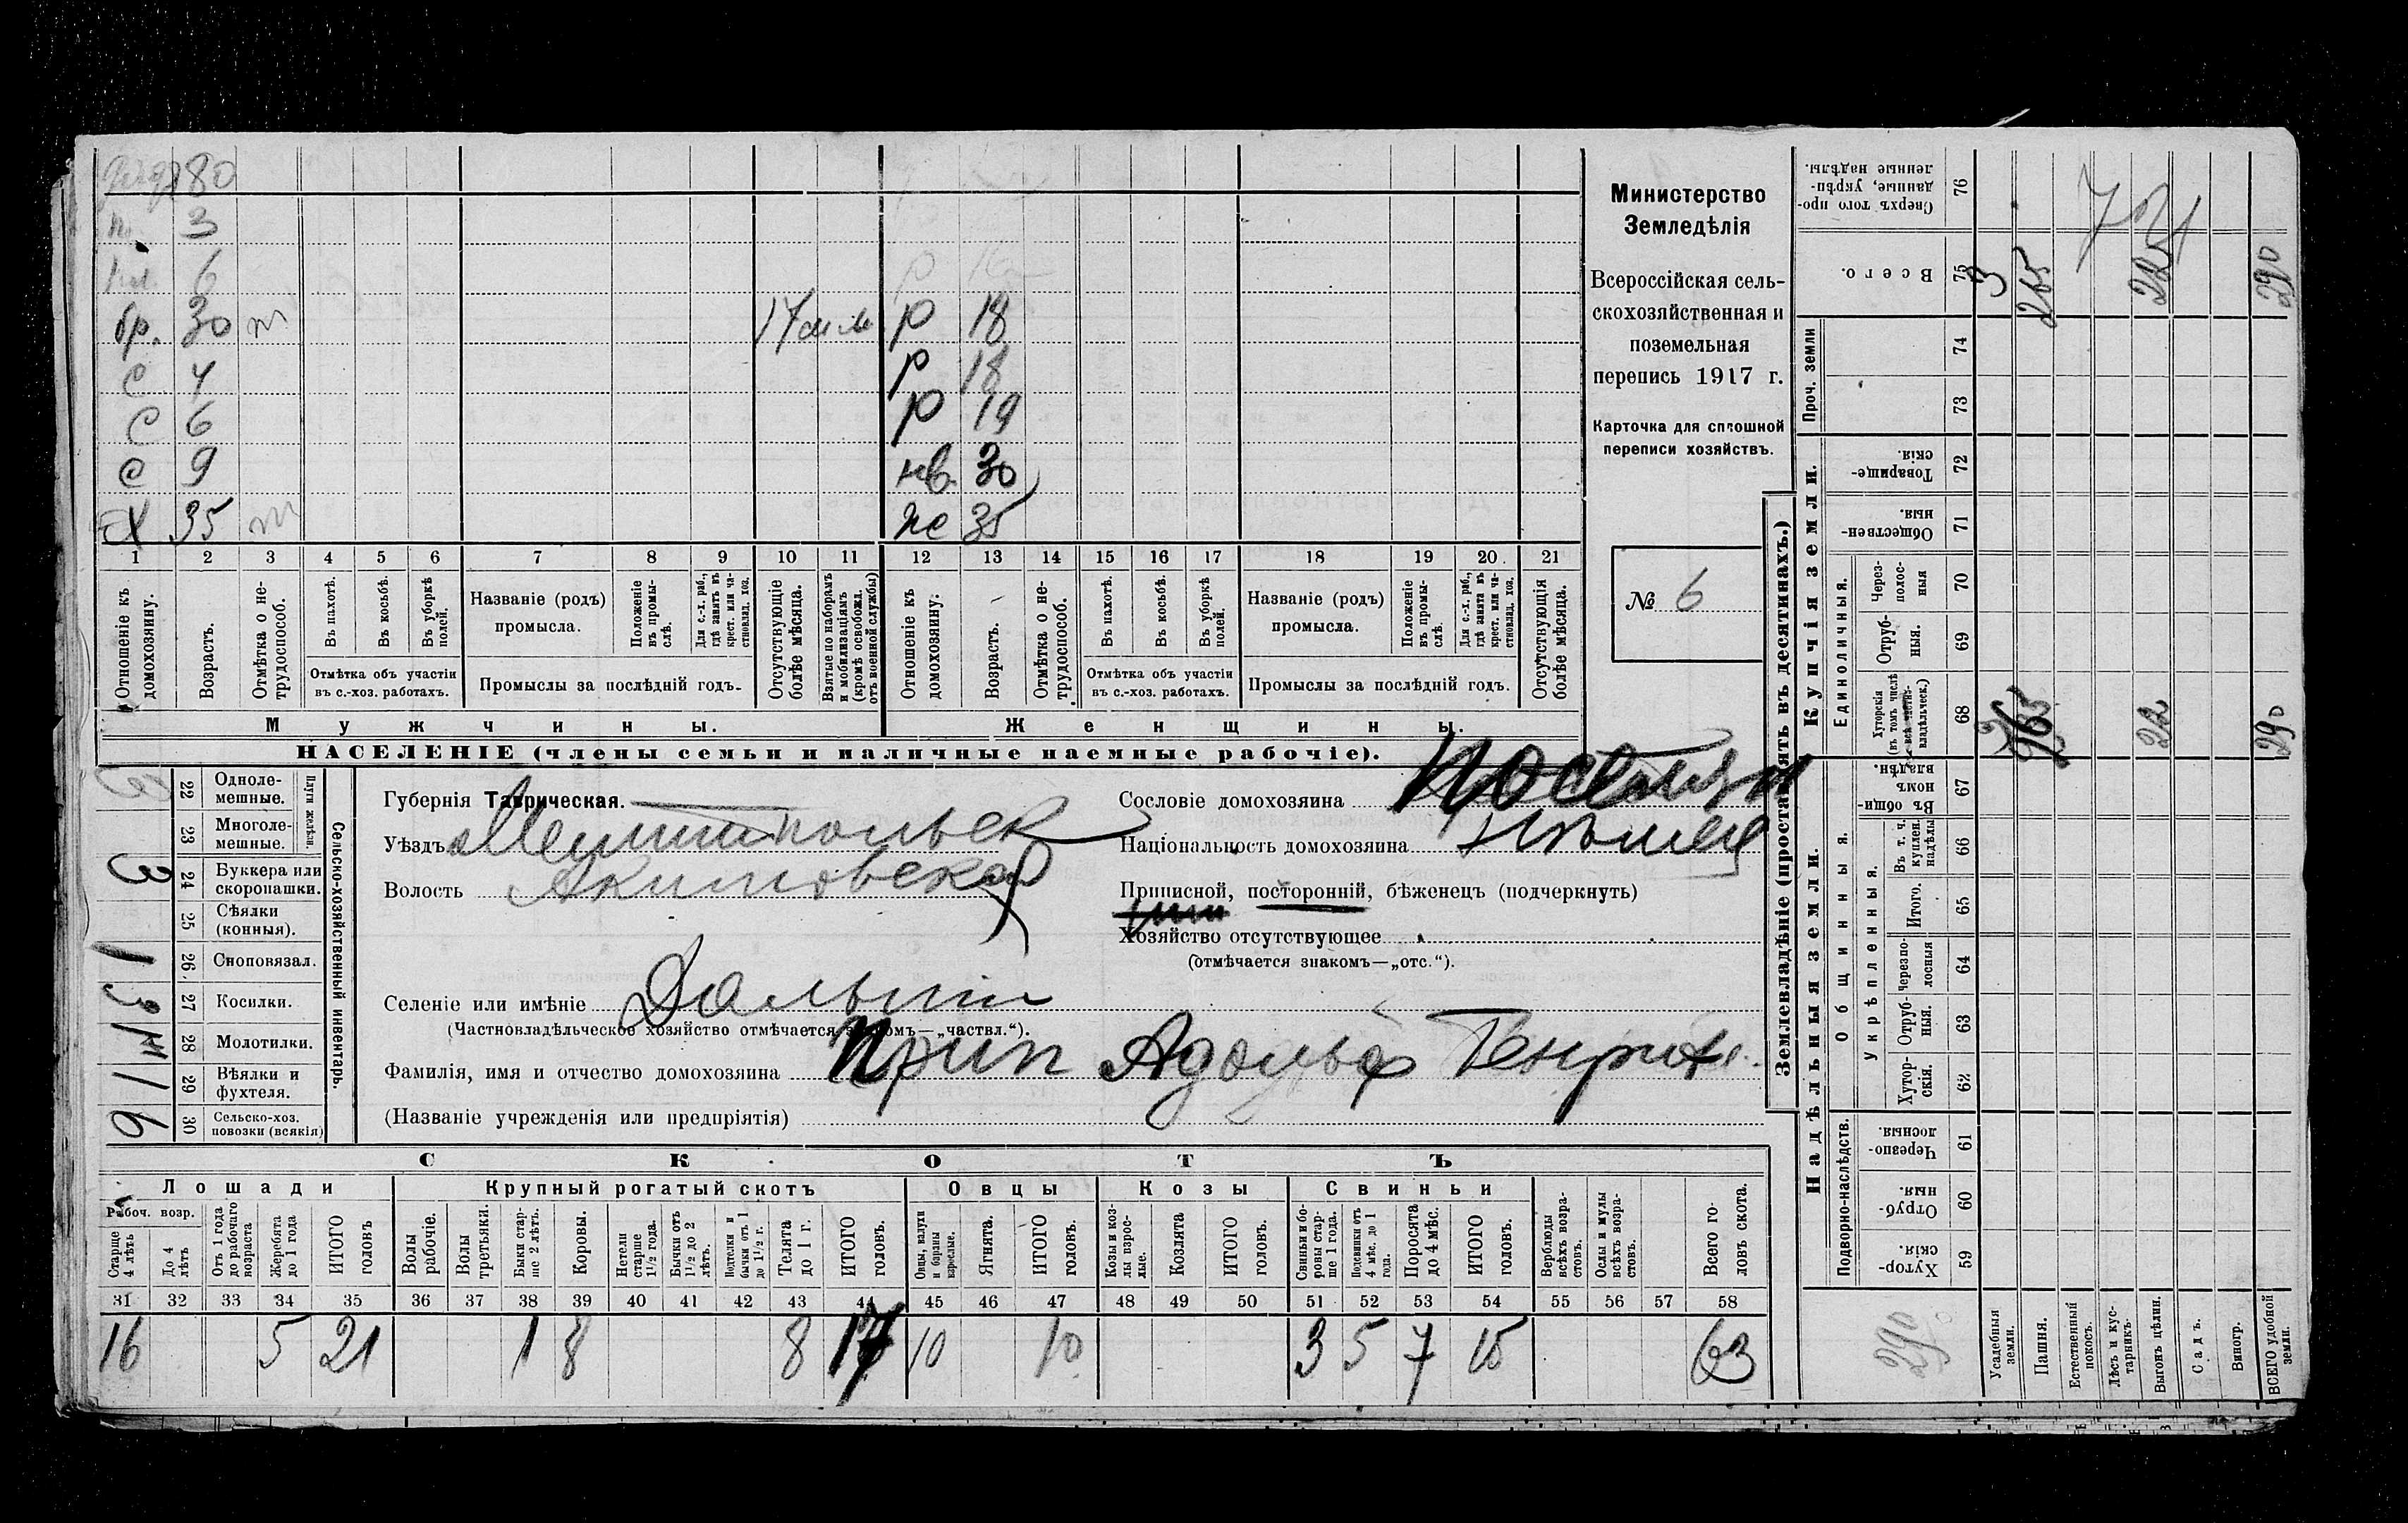 80
3
6
бр. 30 т 17 р 18
с 4 р 18
с 6 р 19
с 9 нв. 30
х 35 т же 35
1 2 3 4 5 6 7 8 9 10 11 12 13 14 15 16 17 18 19 20 21
Отношеніе къ домохозяину.
Возрастъ.
Отмѣтка о не-
трудоспособ.
Въ пахотѣ.
Въ косьбѣ.
Въ уборкѣ
полей.
Отмѣтка объ участіи
въ с.-хоз. работахъ.
Названіе (родъ)
промысла.
Положеніе
въ промы-
слѣ.
Для с.-х. раб.,
гдѣ занятъ въ
крест. или ча-
стновлад. хоз.
Промыслы за послѣдній годъ.
Отсутствующіе
болѣе мѣсяца.
Взятые по наборамъ
и мобилизаціямъ
(кромѣ освобожд.
отъ военной службы)
Отношеніе къ
домохозяину.
Возрастъ.
Отмѣтка о не-
трудоспособ.
Въ пахотѣ.
Въ косьбѣ.
Въ уборкѣ
полей.
Отмѣтка объ участіи
въ с.-хоз. работахъ.
Названіе (родъ)
промысла.
Положеніе
въ промы-
слѣ.
Для с.-х. раб.,
гдѣ занята въ
крест. или ча-
стновлад. хоз.
Промыслы за послѣдній годъ.
Отсутствующія
болѣе мѣсяца.
Мужчины.
Женщины.
НАСЕЛЕНІЕ (члены семьи и наличные наемные рабочіе).
Министерство
Земледѣлія
Всероссійская сель-
скохозяйственная и
поземельная
перепись 1917 г.
Карточка для сплошной
переписи хозяйствъ.
№ 6
22 Одноле-
мешные.
23 Многоле-
мешные.
Плуги желѣзн.
3 24 Буккера или
скоропашки.
25 Сѣялки
(конныя).
1 26. Сноповязал.
27 Косилки.
28 Молотилки.
1 29 Вѣялки и
фухтеля.
6 30 Сельско-хоз.
повозки (всякія)
Сельско-хозяйственный инвентарь.
Губернія Таврическая.
Уѣздъ Мелитопольск
Волость Акимовская
Селеніе или имѣніе
(Частновладѣльческое хозяйство отмѣчается знакомъ—„частвл.“).
Фамилія, имя и отчество домохозяина Адольф Генрих.
(Названіе учрежденія или предпріятія)
Сословіе домохозяина поселян
Національность домохозяина нѣмец
Приписной, посторонній, бѣженецъ (подчеркнуть)
Хозяйство отсутствующее
(отмѣчается знакомъ—„отс.“).
СКОТЪ
Лошади
Рабоч. возр.
Старше
4 лѣтъ
До 4
лѣтъ
Отъ 1 года
до рабочаго
возраста
Жеребята
до 1 года
ИТОГО
головъ
Крупный рогатый скотъ
Волы
рабочіе.
Волы
третьяки.
Быки стар-
ше 2 лѣтъ.
Коровы.
Нетели
старше
1 1/2 года.
Бычки отъ
1 1/2 до 2
лѣтъ.
Подтелки и
бычки отъ 1
до 1 1/2 г.
Телята
до 1 г.
ИТОГО
головъ.
Овцы
Овцы, валухи
и бараны
взрослые.
Ягнята.
ИТОГО
головъ.
Козы
Козы и коз-
лы взрос-
лые.
Козлята
ИТОГО
головъ.
Свиньи
Свиньи и бо-
ровы стар-
ше 1 года.
Подсвинки отъ
4 мѣс. до 1
года.
Поросята
до 4 мѣс.
ИТОГО
головъ.
Верблюды
всѣхъ возра-
стовъ.
Ослы и мулы
всѣхъ возра-
стовъ.
Всего го-
ловъ скота.
31 32 33 34 35 36 37 38 39 40 41 42 43 44 45 46 47 48 49 50 51 52 53 54 55 56 57 58
16 5 21 1 8 8 17 10 10 3 5 7 15 63
Землевладѣніе (проставлять въ десятинахъ.)
Купчія земли.
Надѣльныя земли.
Сверхъ того про-
данные, укрѣп-
ленные надѣлы. 76
Всего. 75 3 265 22 290
Проч. земли
74
73
Товарище-
скія. 72
Обществен-
ныя. 71
Единоличныя.
Через-
полос-
ныя 70
Отруб-
ныя. 69
Хуторскія
(въ томъ числѣ
всѣ частно-
владѣльческ.) 68 265 22 290
Въ общи-
номъ
владѣн. 67
Общинныя.
Укрѣпленныя.
Въ т. ч.
куплен.
надѣлы 66
Итого. 65
Черезпо-
лосныя 64
Отруб-
ныя. 63
Хутор-
скія. 62
Подворно-наслѣдств.
Черезпо-
лосныя. 61
Отруб-
ныя. 60
Хутор-
скія. 59
290
Усадебныя
земли.
Пашня.
Естественный
покосъ.
Лѣсъ и кус-
тарникъ.
Выгонъ цѣлин.
Садъ.
Виногр.
ВСЕГО удобной
земли.